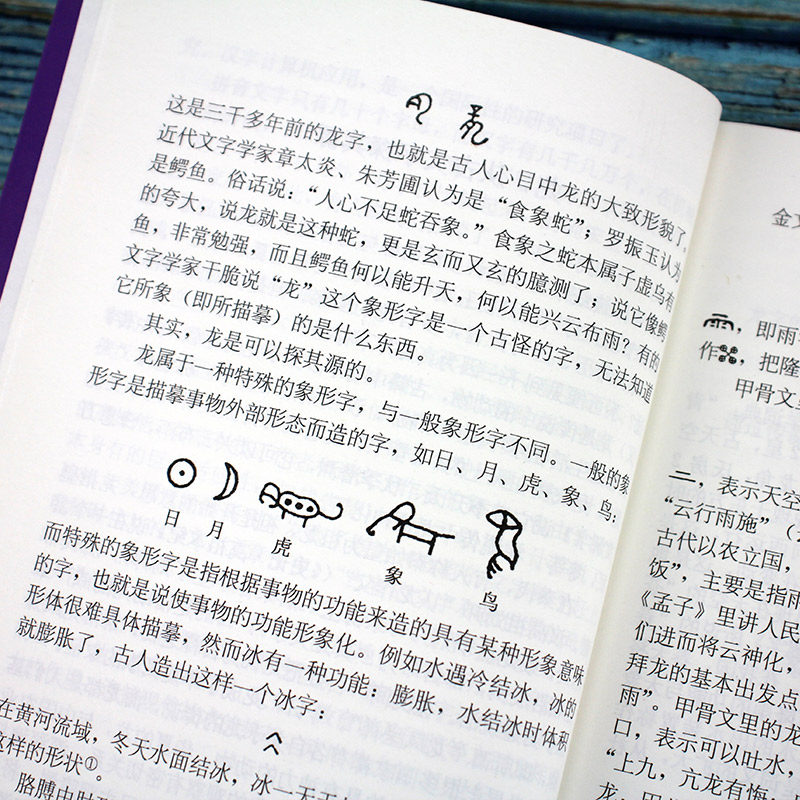 这是三千多年前的龙字，也就是古人心目中龙的大致形貌了。
近代文字学家章太炎、朱芳圃认为是“食象蛇”；罗振玉认为
是鳄鱼。俗话说：“人心不足蛇吞象。”食象之蛇本属子虚乌有
的夸大，说龙就是这种蛇，更是玄而又玄的臆测了；说它像鳄
鱼，非常勉强，而且鳄鱼何以能升天，何以能兴云布雨？有的
文字学家干脆说“龙”这个象形字是一个古怪的字，无法知道
它所象（即所描摹）的是什么东西。
其实，龙是可以探其源的。
龙属于一种特殊的象形字，与一般象形字不同。一般的象
形字是描摹事物外部形态而造的字，如日、月、虎、象、鸟：
日 月 虎 象 鸟
而特殊的象形字是指根据事物的功能来造的具有某种形象意味
的字，也就是说使事物的功能形象化。例如水遇冷结冰，冰的
形体很难具体描摹，然而冰有一种功能：膨胀，水结冰时体积
就膨胀了，古人造出这样一个冰字：
在黄河流域，冬天水面结冰，冰一天天
这样的形状①。
金文
，即雨字
作 ，把隆
甲骨文里
二，表示天空
“云行雨施”
古代以农立国，
饭”，主要是指雨
《孟子》里讲人民
们进而将云神化，
拜龙的基本出发点
雨”。甲骨文里的龙
口，表示可以吐水，
“上九，亢龙有悔，